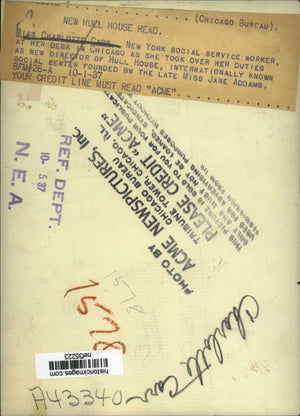 NEW HULL HOUSE HEAD.
(CHICAGO BUREAU).
MISS CHARLOTTE CARR, NEW YORK SOCIAL SERVICE WORKER,
AT HER DESK IN CHICAGO AS SHE TOOK OVER HER DUTIES
AS NEW DIRECTOR OF HULL HOUSE, INTERNATIONALLY KNOWN
SOCIAL CENTER FOUNDED BY THE LATE MISS JANE ADDAMS.
BFM#26-A 10-1-37
YOUR CREDIT LINE MUST READ "ACME".
REF. DEPT.
10-5 37
N. E. A.
PHOTO BY
ACME NEWSPICTURES, INC.
CHICAGO BUREAU
TRIBUNE TOWER, CHICAGO, ILL.
PLEASE CREDIT "ACME"
THIS PICTURE IS
1578
1578
Charlotte Carr
historicimages.com
nef35223
A43340